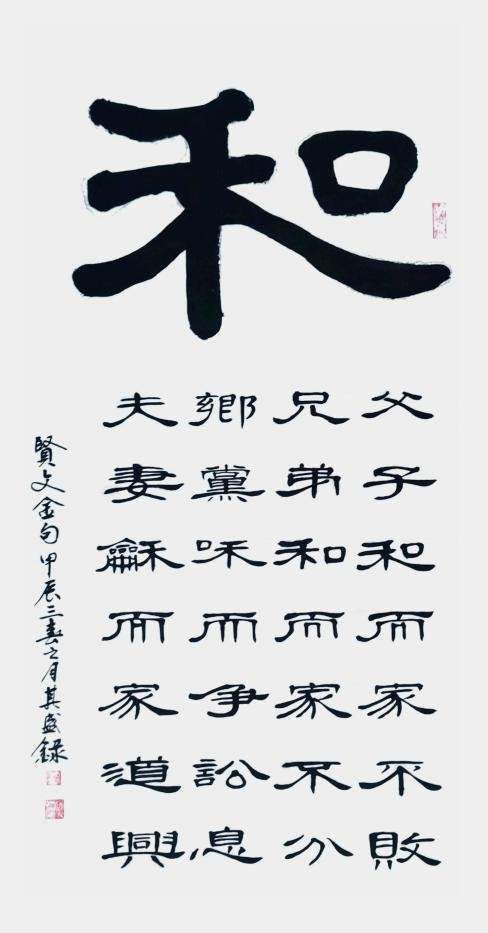 和
父子和而家不败
兄弟和而家不分
鄉黨和而争訟息
夫妻龢而家道興
賢文金句甲辰三春之月其盛録